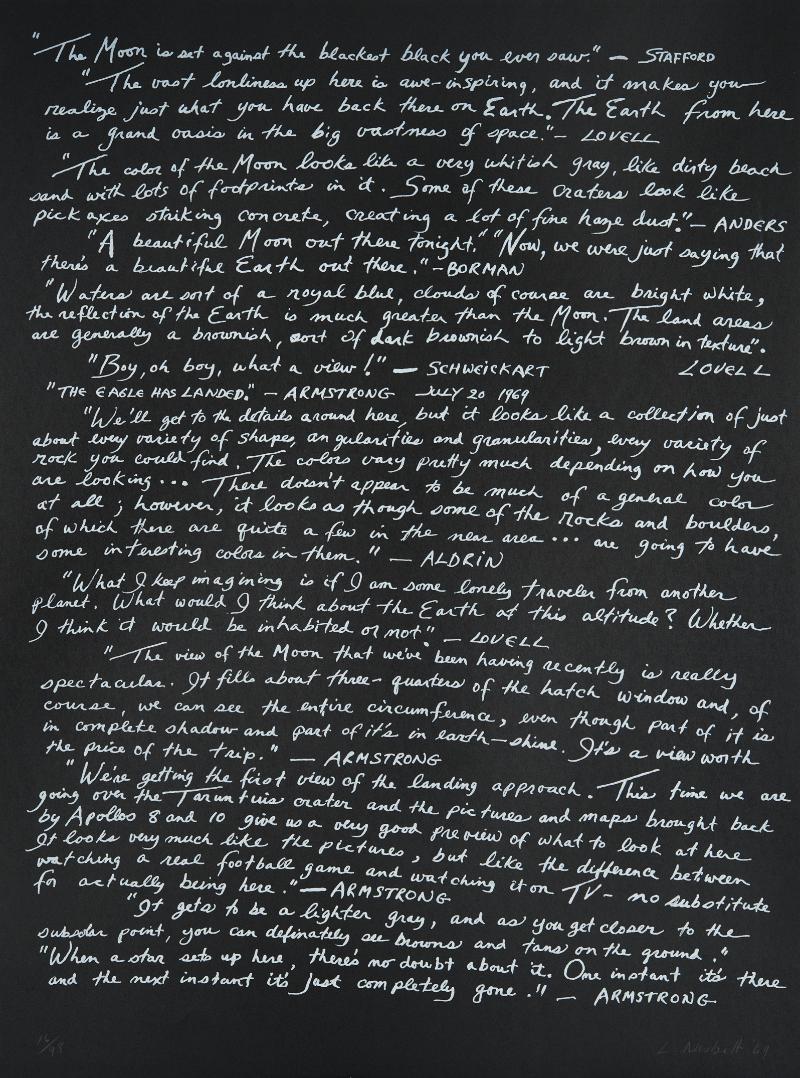 "The Moon is set against the blackest black you ever saw." — STAFFORD
"The vast lonliness up here is awe-inspiring, and it makes you
realize just what you have back there on Earth. The Earth from here
is a grand oasis in the big vastness of space." — LOVELL
"The color of the Moon looks like a very whitish gray, like dirty beach
sand with lots of footprints in it. Some of these craters look like
pick axes striking concrete, creating a lot of fine haze dust." — ANDERS
"A beautiful Moon out there tonight." "Now, we were just saying that
there's a beautiful Earth out there." — BORMAN
"Waters are sort of a royal blue, clouds of course are bright white,
the reflection of the Earth is much greater than the Moon. The land areas
are generally a brownish, sort of dark brownish to light brown in texture".
"Boy, oh boy, what a view!" — SCHWEICKART LOVELL
"THE EAGLE HAS LANDED." — ARMSTRONG JULY 20 1969
"We'll get to the details around here, but it looks like a collection of just
about every variety of shapes, angularities and granularities, every variety of
rock you could find. The colors vary pretty much depending on how you
are looking... There doesn't appear to be much of a general color
at all; however, it looks as though some of the rocks and boulders,
of which there are quite a few in the near area... are going to have
some interesting colors in them." — ALDRIN
"What I keep imagining is if I am some lonely traveler from another
planet. What would I think about the Earth at this altitude? Whether
I think it would be inhabited or not." — LOVELL
"The view of the Moon that we've been having recently is really
spectacular. It fills about three-quarters of the hatch window and, of
course, we can see the entire circumference, even though part of it is
in complete shadow and part of it's in earth-shine. It's a view worth
the price of the trip." — ARMSTRONG
"We're getting the first view of the landing approach. This time we are
going over the Taruntius crater and the pictures and maps brought back
by Apollos 8 and 10 give us a very good preview of what to look at here
It looks very much like the pictures, but like the difference between
watching a real football game and watching it on TV — no substitute
for actually being here." — ARMSTRONG
"It gets to be a lighter gray, and as you get closer to the
subsolar point, you can definately see browns and tans on the ground."
"When a star sets up here, there's no doubt about it. One instant it's there
and the next instant it's just completely gone." — ARMSTRONG
L. Nesbitt '69